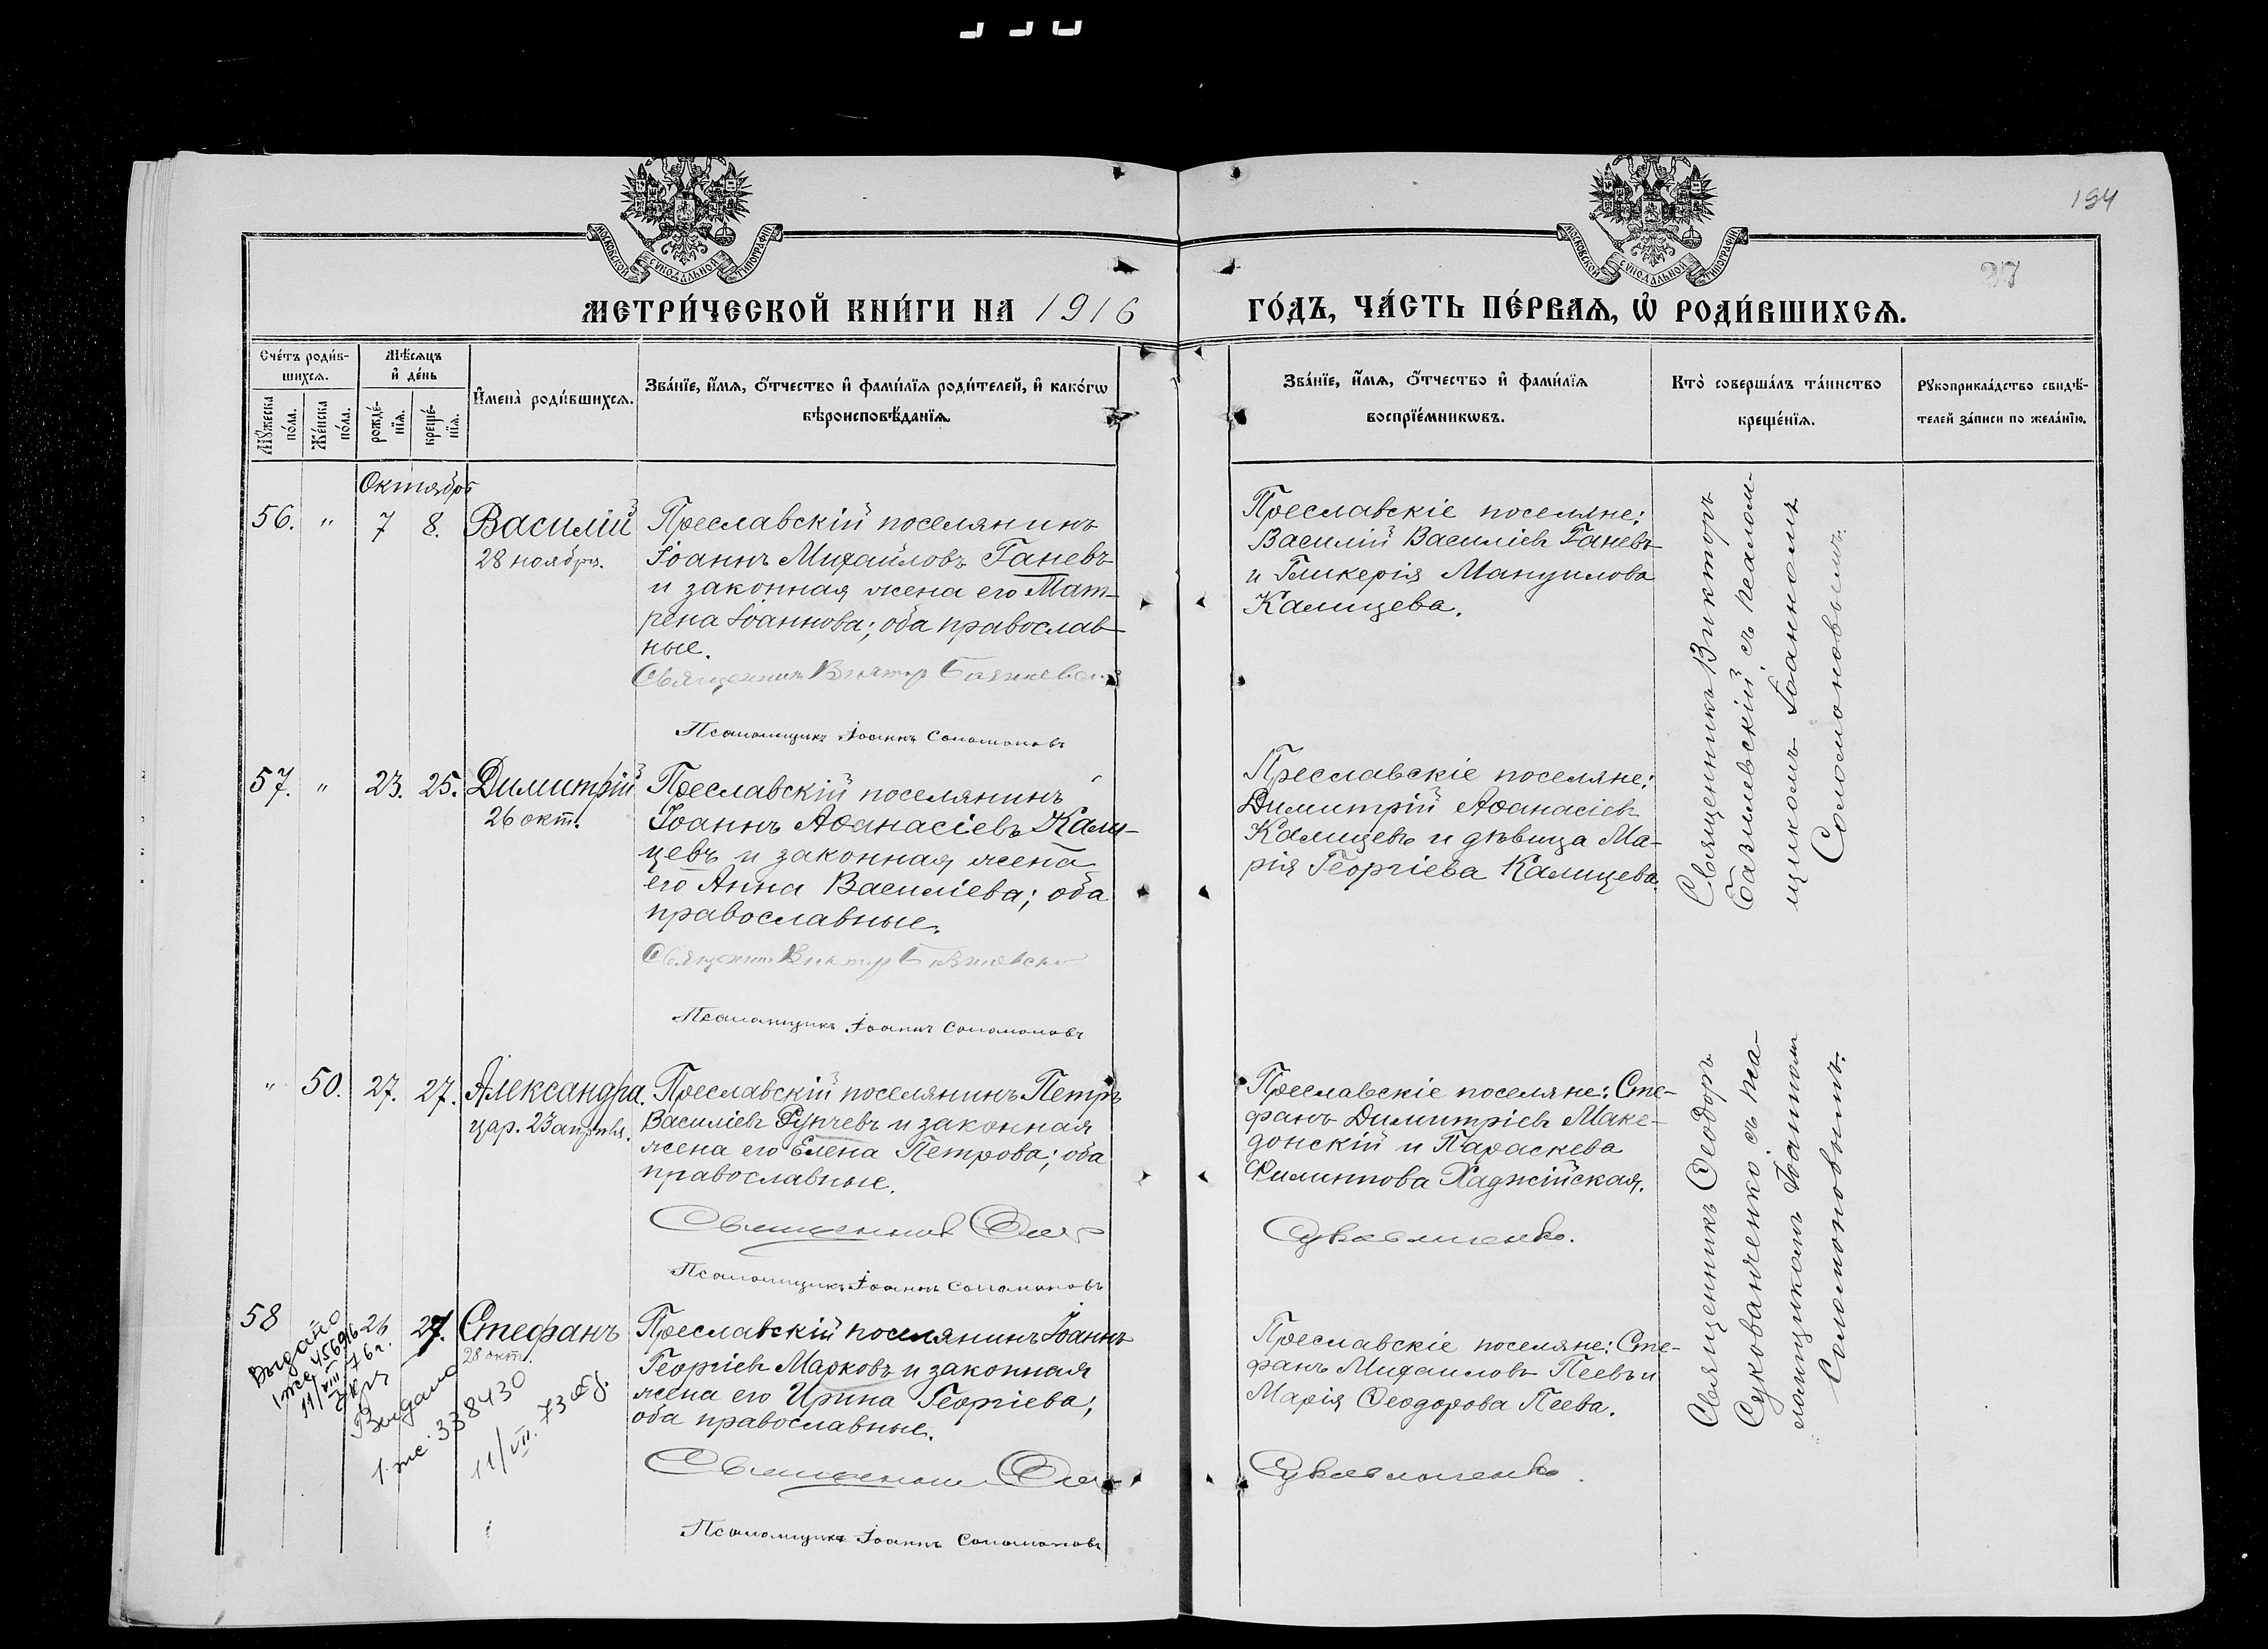 194
37
МОСКОВСКОЙ СѴНОДАЛЬНОЙ ТИПОГРАФІИ
МОСКОВСКОЙ СѴНОДАЛЬНОЙ ТИПОГРАФІИ
МЕТРИ́ЧЕСКОЙ КНИ́ГИ НА 1916 ГО́ДЪ, ЧА́СТЬ ПЕ́РВАѦ, Ѡ РОДИ́ВШИХСѦ.
Сче́тъ роди́в-
шихсѧ.
Мѣ́сѧцъ
и҆ де́нь
Мꙋ́жеска
по́ла.
Же́нска
по́ла.
рожде́-
нїѧ.
креще́-
нїѧ.
И҆мена̀ роди́вшихсѧ.
Зва́нїе, и҆́мѧ, ѻ҆́тчество и҆ фами́лїѧ роди́телей, и҆ како́гѡ
вѣроисповѣ́данїѧ.
Зва́нїе, и҆́мѧ, ѻ҆́тчество и҆ фами́лїѧ
воспрїе́мникѡвъ.
Кто̀ соверша́лъ та́инство
креще́нїѧ.
Рꙋкоприкла́дство свидѣ́-
телей за́писи по жела́нїю.
Октябрь
56. " 7 8. Василій
28 ноября.
Преславскій поселянинъ
Іоаннъ Михайловъ Ганевъ
и законная жена его Мат-
рена Іоаннова; оба православ-
ные.
Священникъ Викторъ Базилевскій
Псаломщикъ Іоаннъ Соломоновъ
Преславскіе поселяне:
Василій Василіевъ Ганевъ
и Гликерія Мануилова
Калицева.
Священникъ Викторъ
Базилевскій съ псалом-
щикомъ Іоанномъ
Соломоновымъ.
57. " 23. 25. Димитрій
26 окт.
Преславскій поселянинъ
Іоаннъ Аѳанасіевъ Кали-
цевъ и законная жена
его Анна Василіева; оба
православные.
Священникъ Викторъ Базилевскій
Псаломщикъ Іоаннъ Соломоновъ
Преславскіе поселяне:
Димитрій Аѳанасіевъ
Калицевъ и дѣвица Ма-
рія Георгіева Калицева.
" 50. 27. 27. Александра.
цар. 23 апрѣля.
Преславскій поселянинъ Петръ
Василіевъ Фунчевъ и законная
жена его Елена Петрова; оба
православные.
Священникъ
Псаломщикъ Іоаннъ Соломоновъ
Преславскіе поселяне: Сте-
фанъ Димитріевъ Маке-
донскій и Параскева
Филиппова Хаджійская.
Сукованченко.
Священникъ Ѳеодоръ
Сукованченко съ пса-
ломщикомъ Іоанномъ
Соломоновымъ.
58 26 27. Стефанъ
28 окт.
Преславскій поселянинъ Іоаннъ
Георгіевъ Марковъ и законная
жена его Ирина Георгіева;
оба православные.
Священникъ
Псаломщикъ Іоаннъ Соломоновъ
Преславскіе поселяне: Сте-
фанъ Михаиловъ Пеевъ и
Марія Ѳеодорова Пеева.
Сукованченко.
Выдано
456916
11/VIII-76 г.
Выдано
1-же 338430
11/VII. 73